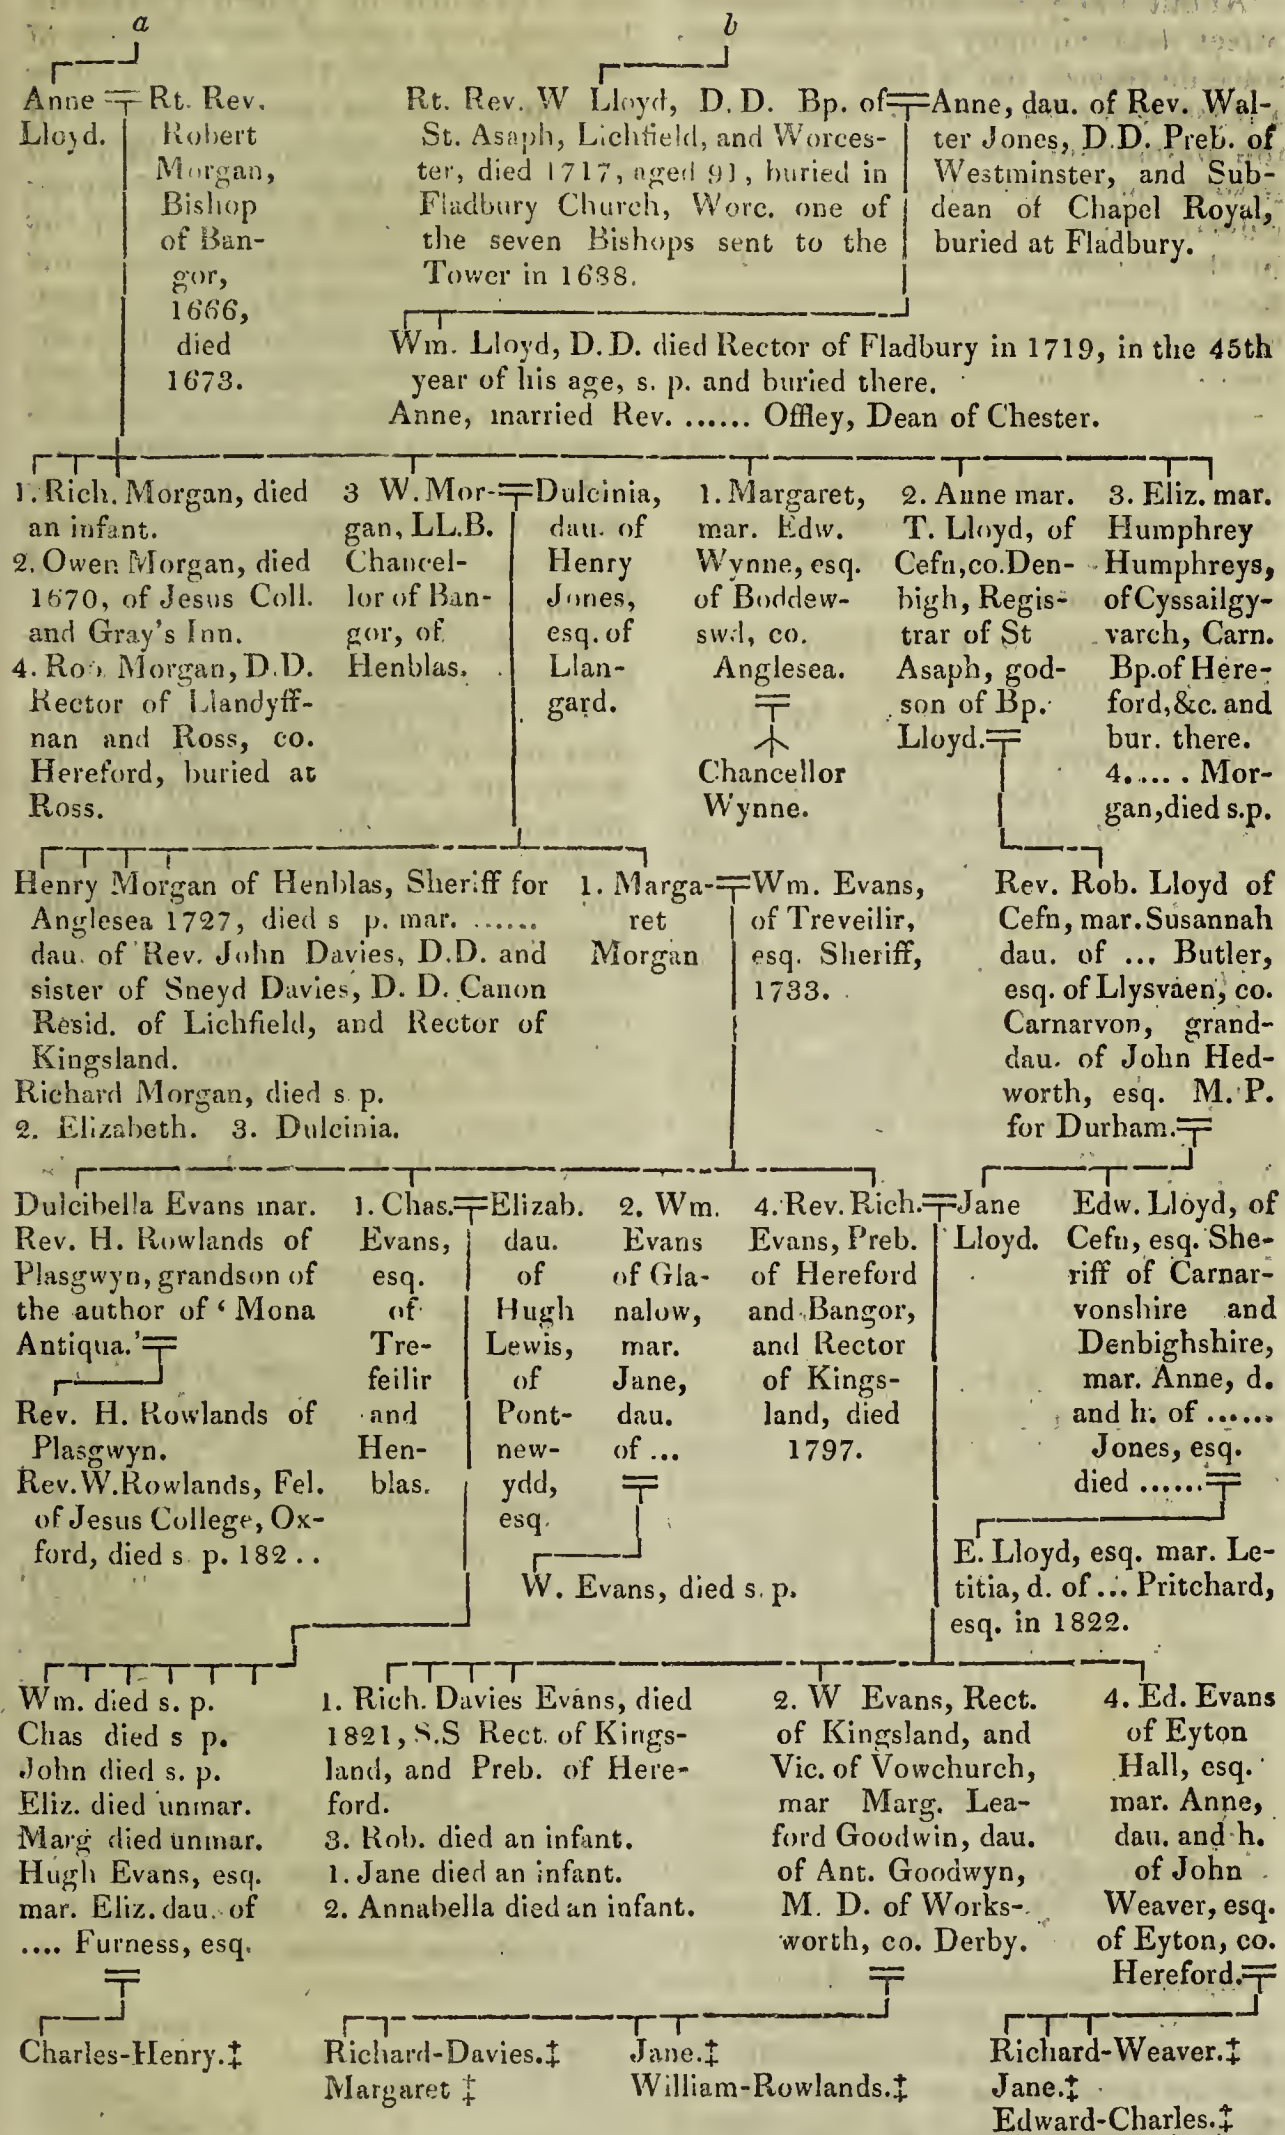 a
b
Anne
Lloyd.
Rt. Rev.
Robert
Morgan,
Bishop
of Ban-
gor,
1666,
died
1673.
Rt. Rev. W Lloyd, D. D. Bp. of
St. Asaph, Lichfield, and Worces-
ter, died 1717, aged 91, buried in
Fladbury Church, Worc. one of
the seven Bishops sent to the
Tower in 1688.
Anne, dau. of Rev. Wal-
ter Jones, D.D. Preb. of
Westminster, and Sub-
dean of Chapel Royal,
buried at Fladbury.
Wm. Lloyd, D. D. died Rector of Fladbury in 1719, in the 45th
year of his age, s. p. and buried there.
Anne, married Rev. ...... Offley, Dean of Chester.
1. Rich. Morgan, died
an infant.
2. Owen Morgan, died
1670, of Jesus Coll.
and Gray's Inn.
4. Rob. Morgan, D.D.
Rector of Llandyff-
nan and Ross, co.
Hereford, buried at
Ross.
3 W. Mor-
gan, LL.B.
Chancel-
lor of Ban-
gor, of
Henblas.
Dulcinia,
dau. of
Henry
Jones,
esq. of
Llan-
gard.
1. Margaret,
mar. Edw.
Wynne, esq.
of Boddew-
swd, co.
Anglesea.
Chancellor
Wynne.
2. Anne mar.
T. Lloyd, of
Cefn, co. Den-
bigh, Regis-
trar of St
Asaph, god-
son of Bp.
Lloyd.
3. Eliz. mar.
Humphrey
Humphreys,
of Cyssailgy-
varch, Carn.
Bp. of Here-
ford, &c. and
bur. there.
4. .... Mor-
gan, died s.p.
Henry Morgan of Henblas, Sheriff for
Anglesea 1727, died s p. mar. ......
dau. of Rev. John Davies, D.D. and
sister of Sneyd Davies, D. D. Canon
Resid. of Lichfield, and Rector of
Kingsland.
Richard Morgan, died s. p.
2. Elizabeth. 3. Dulcinia.
1. Marga-
ret
Morgan
Wm. Evans,
of Treveilir,
esq. Sheriff,
1733.
Rev. Rob. Lloyd of
Cefn, mar. Susannah
dau. of ... Butler,
esq. of Llysvaen, co.
Carnarvon, grand-
dau. of John Hed-
worth, esq. M. P.
for Durham.
Dulcibella Evans mar.
Rev. H. Rowlands of
Plasgwyn, grandson of
the author of ‘ Mona
Antiqua.’
Rev. H. Rowlands of
Plasgwyn.
Rev. W. Rowlands, Fel.
of Jesus College, Ox-
ford, died s. p. 182 . .
1. Chas.
Evans,
esq.
of
Tre-
feilir
and
Hen-
blas.
Elizab.
dau.
of
Hugh
Lewis,
of
Pont-
new-
ydd,
esq.
2. Wm.
Evans
of Gla-
nalow,
mar.
Jane,
dau.
of ...
W. Evans, died s. p.
4. Rev. Rich.
Evans, Preb.
of Hereford
and Bangor,
and Rector
of Kings-
land, died
1797.
Jane
Lloyd.
Edw. Lloyd, of
Cefn, esq. She-
riff of Carnar-
vonshire and
Denbighshire,
mar. Anne, d.
and h. of ......
Jones, esq.
died ......
E. Lloyd, esq. mar. Le-
titia, d. of ... Pritchard,
esq. in 1822.
Wm. died s. p.
Chas died s p.
John died s. p.
Eliz. died unmar.
Marg died unmar.
Hugh Evans, esq.
mar. Eliz. dau. of
.... Furness, esq.
Charles-Henry.‡
1. Rich. Davies Evans, died
1821, S.S Rect. of Kings-
land, and Preb. of Here-
ford.
3. Rob. died an infant.
1. Jane died an infant.
2. Annabella died an infant.
2. W Evans, Rect.
of Kingsland, and
Vic. of Vowchurch,
mar Marg. Lea-
ford Goodwin, dau.
of Ant. Goodwyn,
M. D. of Works-
worth, co. Derby.
Richard-Davies.‡
Margaret ‡
Jane.‡
William-Rowlands.‡
4. Ed. Evans
of Eyton
Hall, esq.
mar. Anne,
dau. and h.
of John
Weaver, esq.
of Eyton, co.
Hereford.
Richard-Weaver.‡
Jane.‡
Edward-Charles.‡